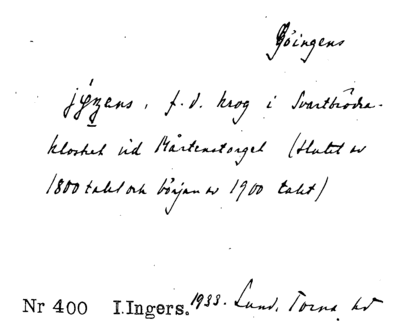 Göingens
jö́ŋens, f.d. krog i Svartbrödra-
klostret vid Mårtenstorget (slutet av
1800 talet och början av 1900 talet)
Nr 400 I. Ingers. 1933. Lund, Torna hd